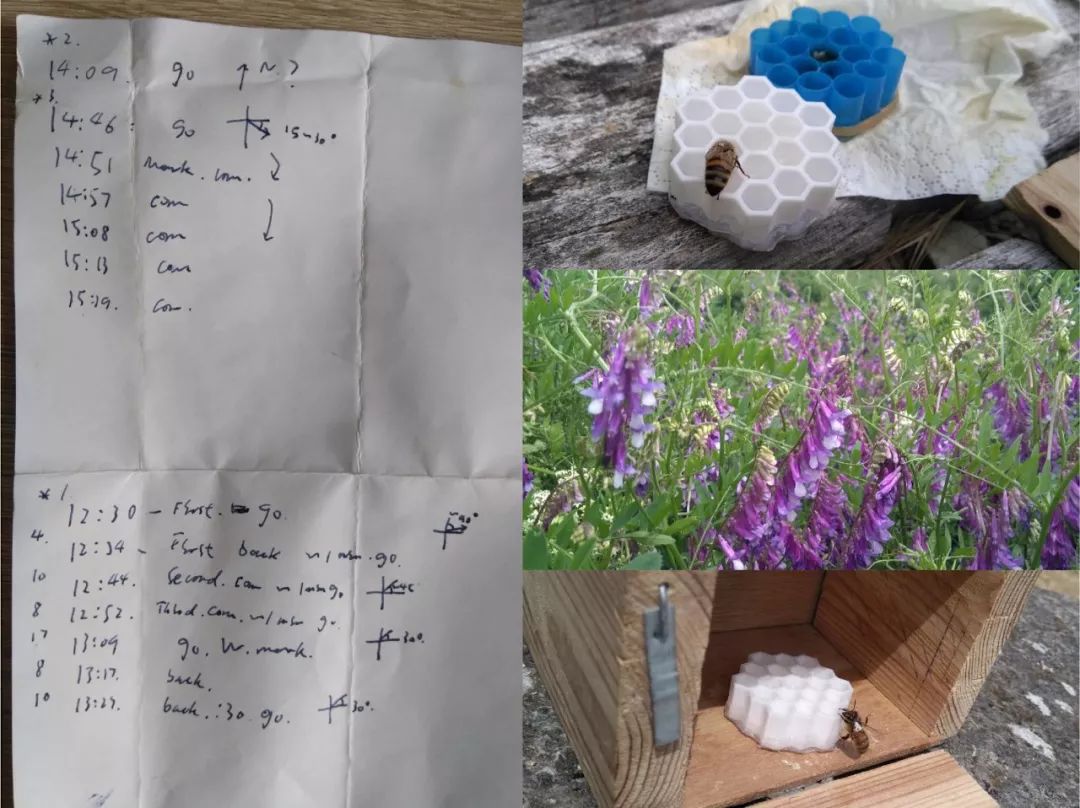 *2.
14:09. go ↑ N.?
*3.
14:46: go 15-30°
14:51 mark. com.
14:57 com
15:08 com
15:13 com
15:19. com.
*1.
12:30 - First. go. 90°
4. 12:34 - First back w/ 1min. go.
10 12:44. Second. com w/ 1min go
8 12:52. Third. com. w/ min go.
17 13:09 go. W. mark. 30°.
8 13:17. back.
10 13:27. back. :30. go. 30°.